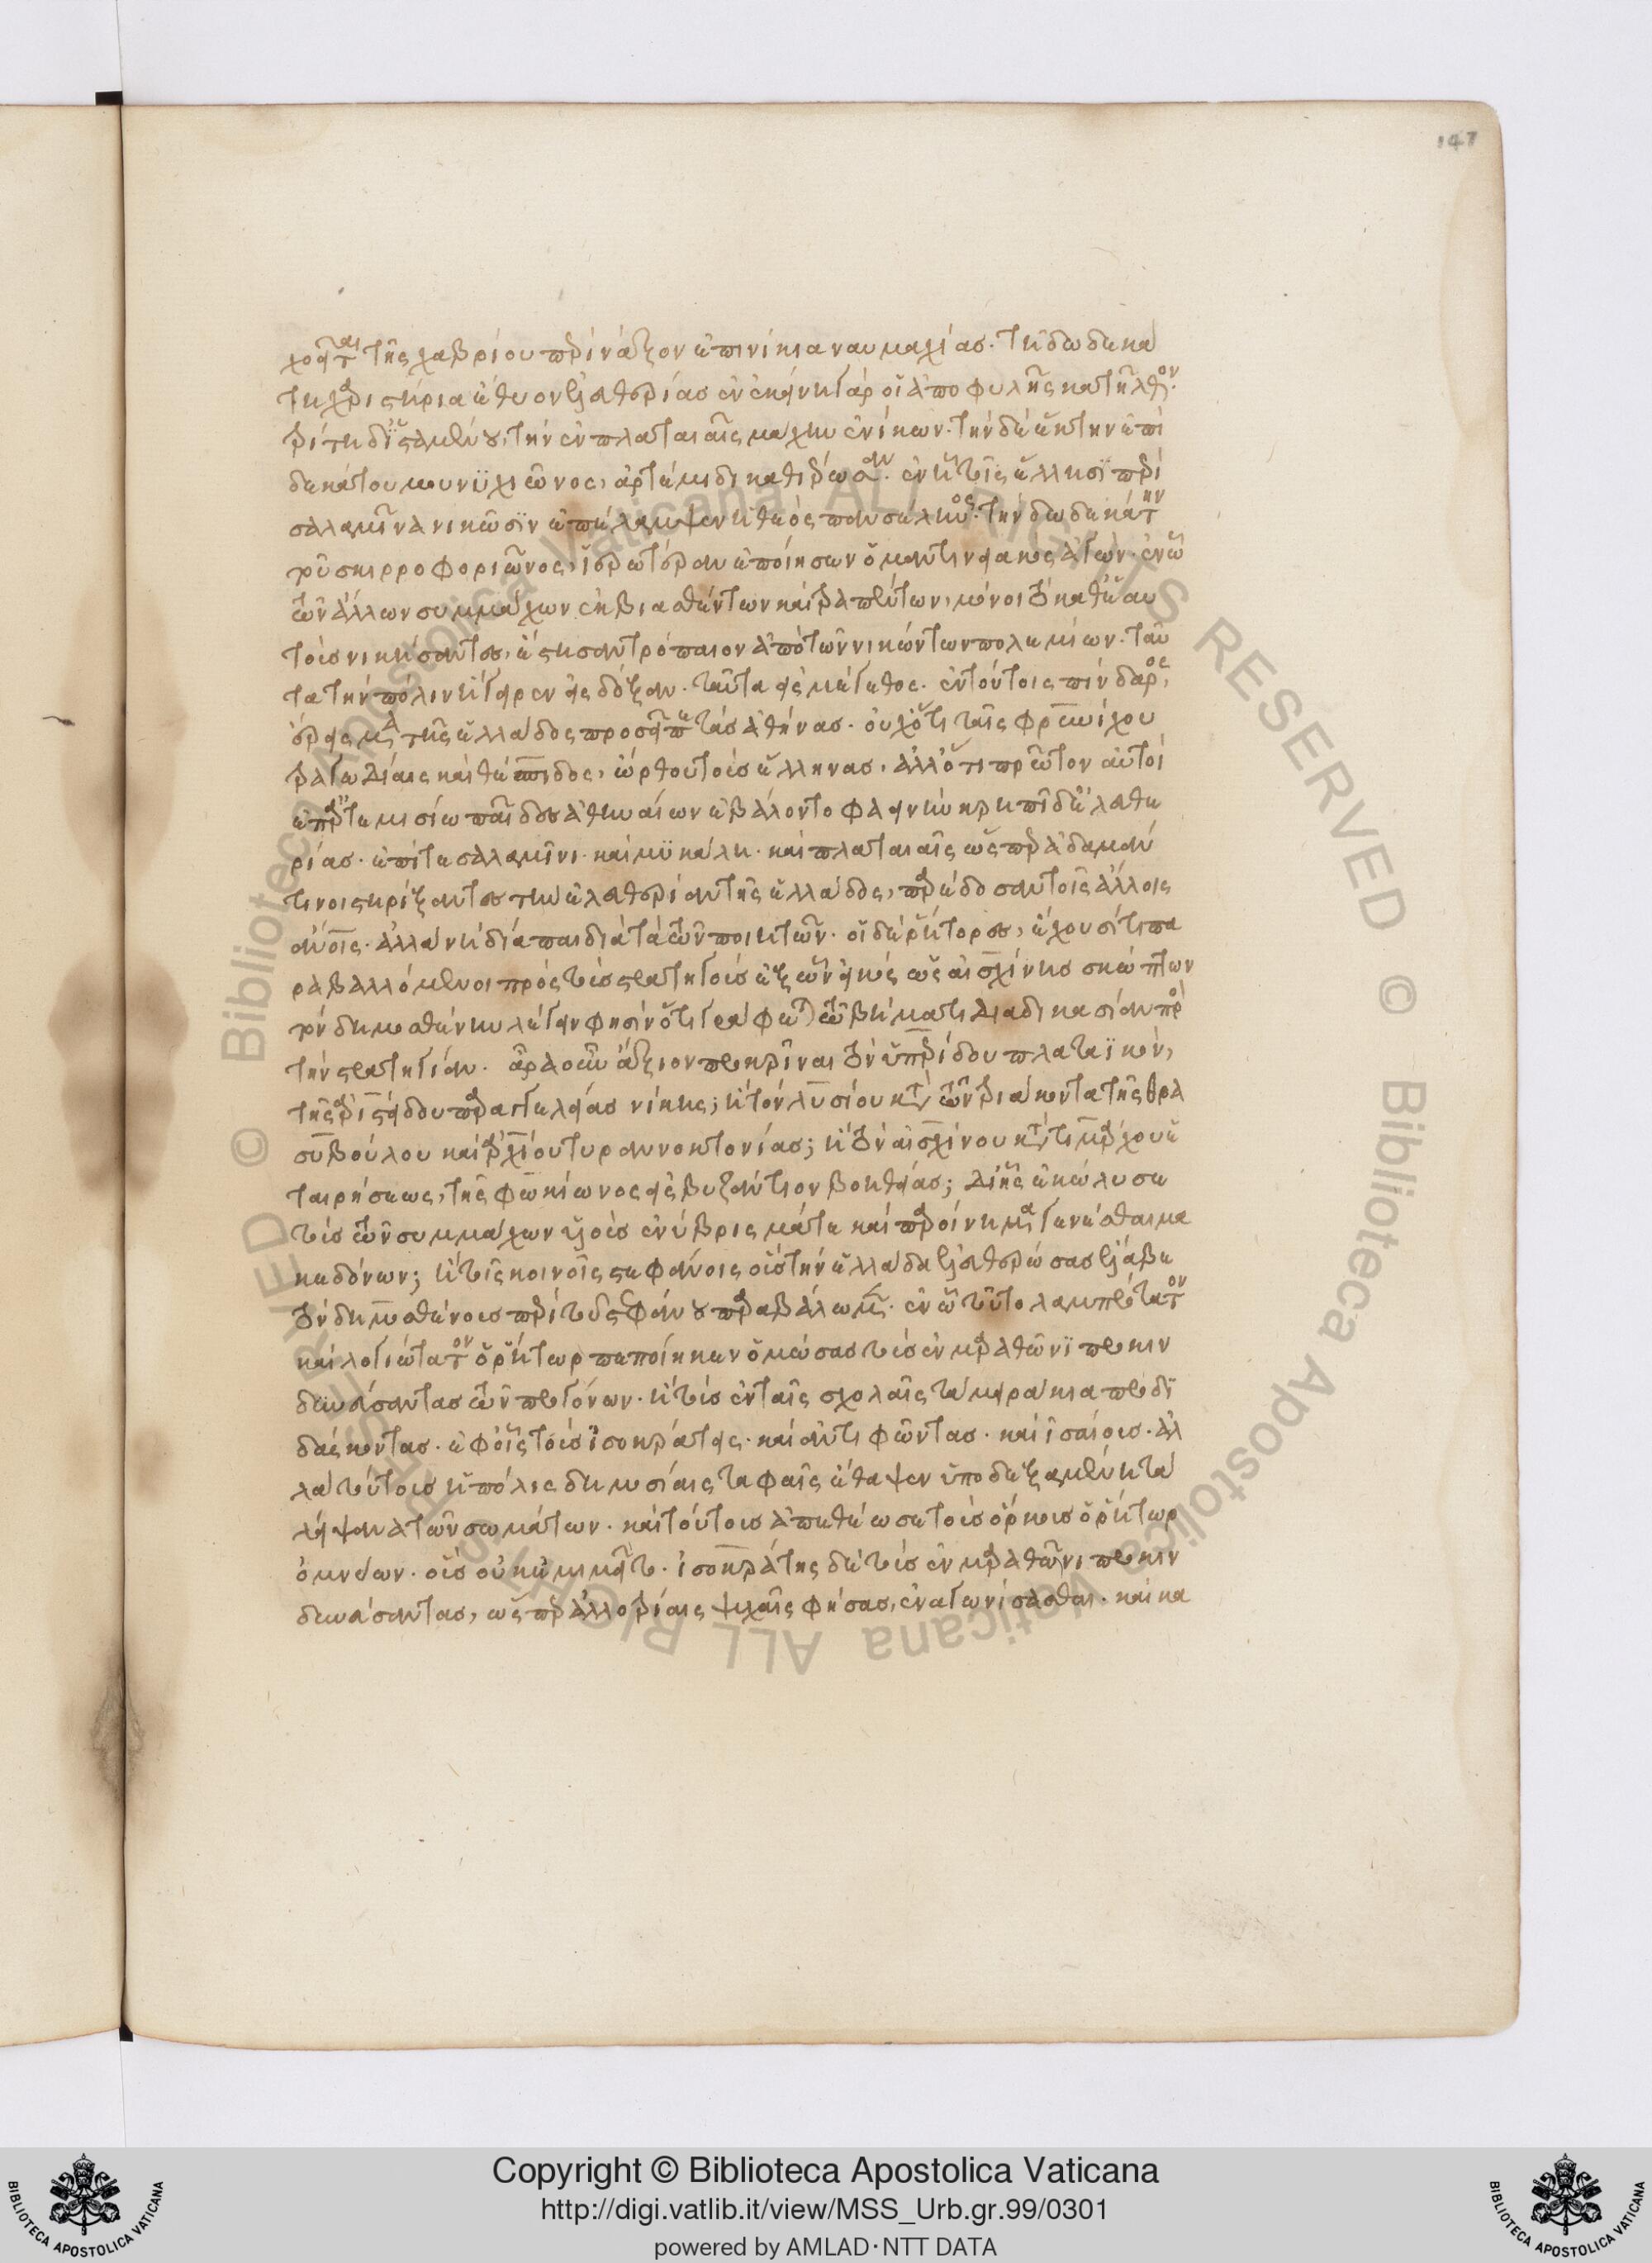 χοεῖται τῆς χαβρίου περὶ νάξον ἐπινίκια ναυμαχίας. τῇ δωδεκά
τῃ χαριστήρια ἔθυον ἐλευθερίας ἐν ἐκείνῃ γὰρ οἱ ἀπὸ φυλῆς κατῆλθον.
τρίτῃ δ' ἱσταμένου, τὴν ἐν πλαταιαῖς μάχην ἐνίκων. τὴν δὲ ἕκτην ἐπὶ
δεκάτου μουνϋχιῶνος, ἀρτέμιδι καθιέρωσαν. ἐν ᾗ τοῖς ἕλλησϊ περὶ
σαλαμῖνα νικῶσϊν ἐπέλαμψεν ἡ θεὸς πανσέληνος. τὴν δωδεκάτην
τοῦ σκιρροφοριῶνος, ἱερωτέραν ἐποίησεν ὁ μαντινειακὸς ἀγών. ἐν ᾧ
τῶν ἄλλων συμμάχων ἐκβιασθέντων καὶ τραπέντων, μόνοι τὸ καθ' ἑαυ
τοὺς νικήσαντες, ἔστησαν τρόπαιον ἀπὸ τῶν νικώντων πολεμίων. ταῦ
τα τὴν πόλιν ἤγαρεν εἰς δόξαν. ταῦτα εἰς μέγεθος. ἐν τούτοις πίνδαρος,
ἔρεισμα τῆς ἑλλάδος προσεῖπε τὰς ἀθήνας. οὐχ ὅτι ταῖς φρυνίχου
τραγῳδίαις καὶ θέσπιδος, ὤρθου τοὺς ἕλληνας, ἀλλ' ὅτι πρῶτον αὐτοὶ
ἐπ' ἀρτεμισίω παῖδες ἀθηναίων ἐβάλοντο φαεννὴν κρηπῖδ' ἐλευθε
ρίας. ἐπί τε σαλαμῖνι. καὶ μϋκάλη. καὶ πλαταιαῖς ὥσπερ ἀδαμαν
τίνοις στηρίξαντες τὴν ἐλευθερίαν τῆς ἑλλάδος, παρέδοσαν τοῖς ἄλλοις
ἀνοῖς. ἀλλὰ νὴ δία παιδιὰ τὰ τῶν ποιητῶν. οἱ δὲ ῥήτορες, ἔχουσί τι πα
ραβαλλόμενοι πρὸς τοὺς στρατηγοὺς ἐξ ὧν εἰκὸς ὡς αἰσχίνης σκώπτων
τὸν δημοσθένην λέγειν φησὶν ὅτι γράφεται τῶ βήματι διαδικασίαν πρὸς
τὴν στρατηγίαν. ἆρα οὖν ἄξιον προκρῖναι τὸν ὑπερίδου πλαταϊκὸν,
τῆς ἀριστείδου πρὸς πλαταιὰς νίκης; ἢ τὸν λυσίου κατὰ τῶν τριάκοντα τῆς θρα
συβούλου καὶ ἀρχίου τυραννοκτονίας; ἢ τὸν αἰσχίνου κατὰ τιμάρχου ἑ
ταιρήσεως, τῆς φωκίωνος εἰς βυζάντιον βοηθείας; δι' ἧς ἐκώλυσε
τοὺς τῶν συμμάχων υἱοὺς ἐνύβρισμά τε καὶ παροίνημα γενέσθαι μα
κεδόνων; ἢ τοῖς κοινοῖς στεφάνοις οὓς τὴν ἑλλάδα ἐλευθερώσας ἔλαβε
τὸν δημοσθένους περὶ τοῦ στεφάνου παραβάλωμεν. ἐν ᾧ τοῦτο λαμπρότατον
καὶ λογιώτατον ὁ ῥήτωρ πεποίηκεν ὀμόσας τοὺς ἐν μαραθῶνϊ προκιν
δυνεύσαντας τῶν προγόνων. ἢ τοὺς ἐν ταῖς σχολαῖς τὰ μειράκια προδϊ
δάσκοντας. ἐφ' οἷς τοὺς ἰσοκράτεις. καὶ ἀντιφῶντας. καὶ ἰσαίους. ἀλ
λὰ τούτους ἡ πόλις δημοσίαις ταφαῖς ἔθαψεν ὑποδεξαμένη τὰ
λείψανα τῶν σωμάτων. καὶ τούτους ἀπεθέωσε τοῖς ὅρκοις ὁ ῥήτωρ
ὀμνύων. οὓς οὐκ ἐμιμεῖτο. ἰσοκράτης δὲ τοὺς ἐν μαραθῶνι προκιν
δυνεύσαντας, ὥσπερ ἀλλοτρίαις ψυχαῖς φήσας, ἐναγωνίσασθαι. καὶ κα